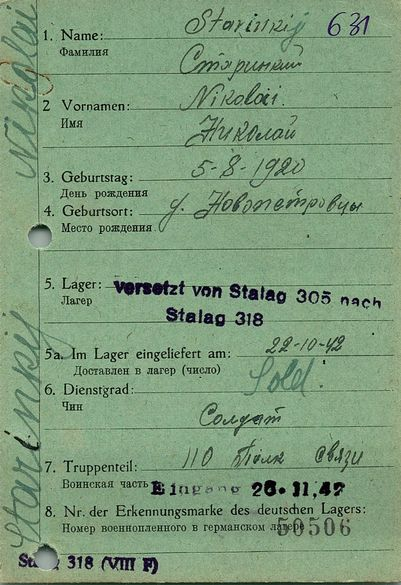 631
1. Name: Starinkij
Фамилия Старинкий
2 Vornamen: Nikolai.
Имя Николай
3. Geburtstag: 5-8-1920
День рождения
4. Geburtsort: д. Новопетровцы
Место рождения
5. Lager: Versetzt von Stalag 305 nach
Лагерь Stalag 318
5a. Im Lager eingeliefert am: 22-10-42
Доставлен в лагерь (число)
6. Dienstgrad: Sold.
Чин Солдат
7. Truppenteil: 110 Полк связи
Воинская часть Eingang 26.11.42
8. Nr. der Erkennungsmarke des deutschen Lagers:
Номер военнопленного в германском лагере 50506
Stalag 318 (VIII F)
Starinkij Nikolai